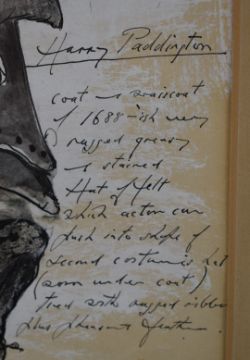 Harry Paddington
coat & waistcoat
of 1688-ish very
ragged greasy
& stained
Hat of felt
which actor can
push into shape of
second costume's hat
(worn under coat)
tied with ragged ribbon
plus pheasant feather.